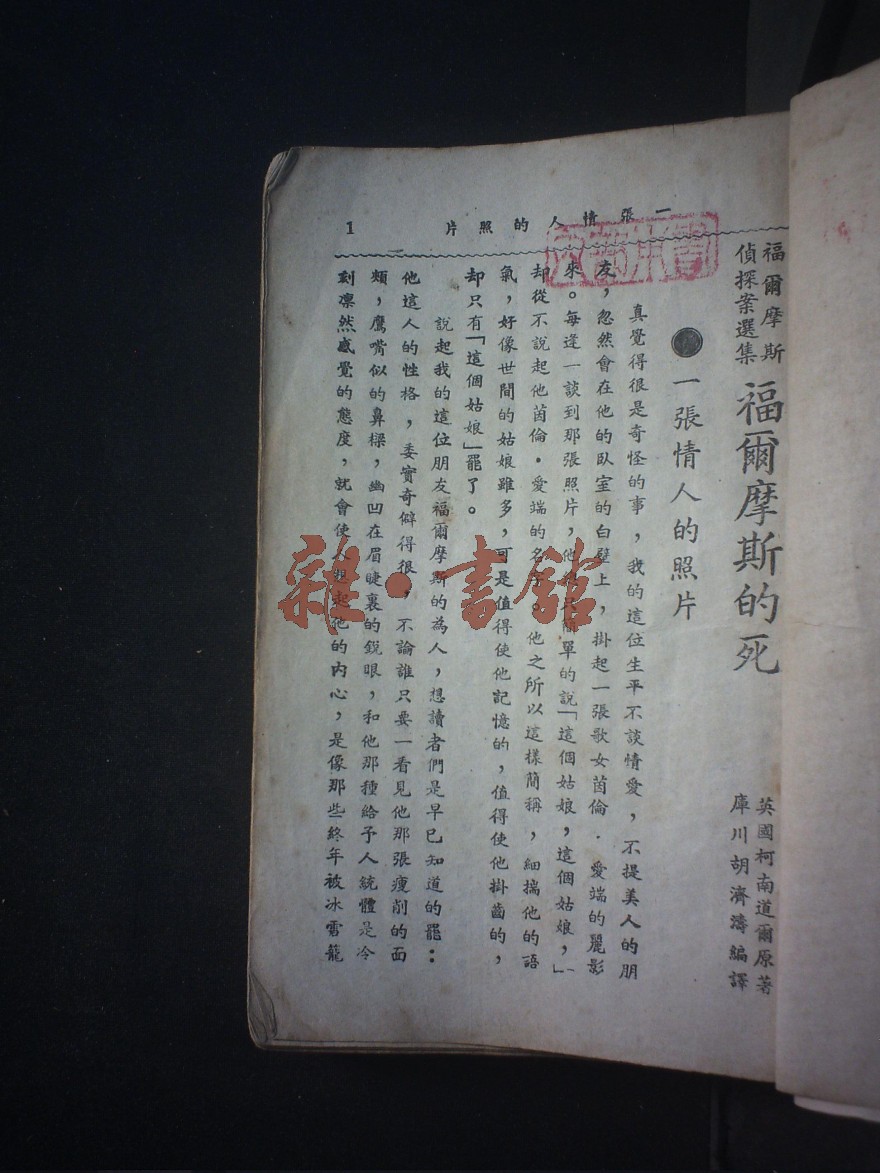 一張情人的照片
1
福爾摩斯
偵探案選集
福爾摩斯的死
英國柯南道爾原著
庫川胡濟濤編譯
一張情人的照片
真覺得很是奇怪的事，我的這位生平不談情愛，不提美人的朋
友，忽然會在他的臥室的白壁上，掛起一張歌女茵倫．愛端的麗影
來。每逢一談到那張照片，他只簡單的說「這個姑娘，這個姑娘，」
却從不說起他茵倫．愛端的名字。他之所以這樣簡稱，細揣他的語
氣，好像世間的姑娘雖多，可是值得使他記憶的，值得使他掛齒的，
却只有「這個姑娘」罷了。
說起我的這位朋友福爾摩斯的為人，想讀者們是早已知道的罷：
他這人的性格，委實奇僻得很，不論誰只要一看見他那張瘦削的面
頰，鷹嘴似的鼻樑，幽凹在眉睫裏的銳眼，和他那種給予人統體是冷
刻凛然感覺的態度，就會使人想起他的內心，是像那些終年被冰雪籠
雜·書館